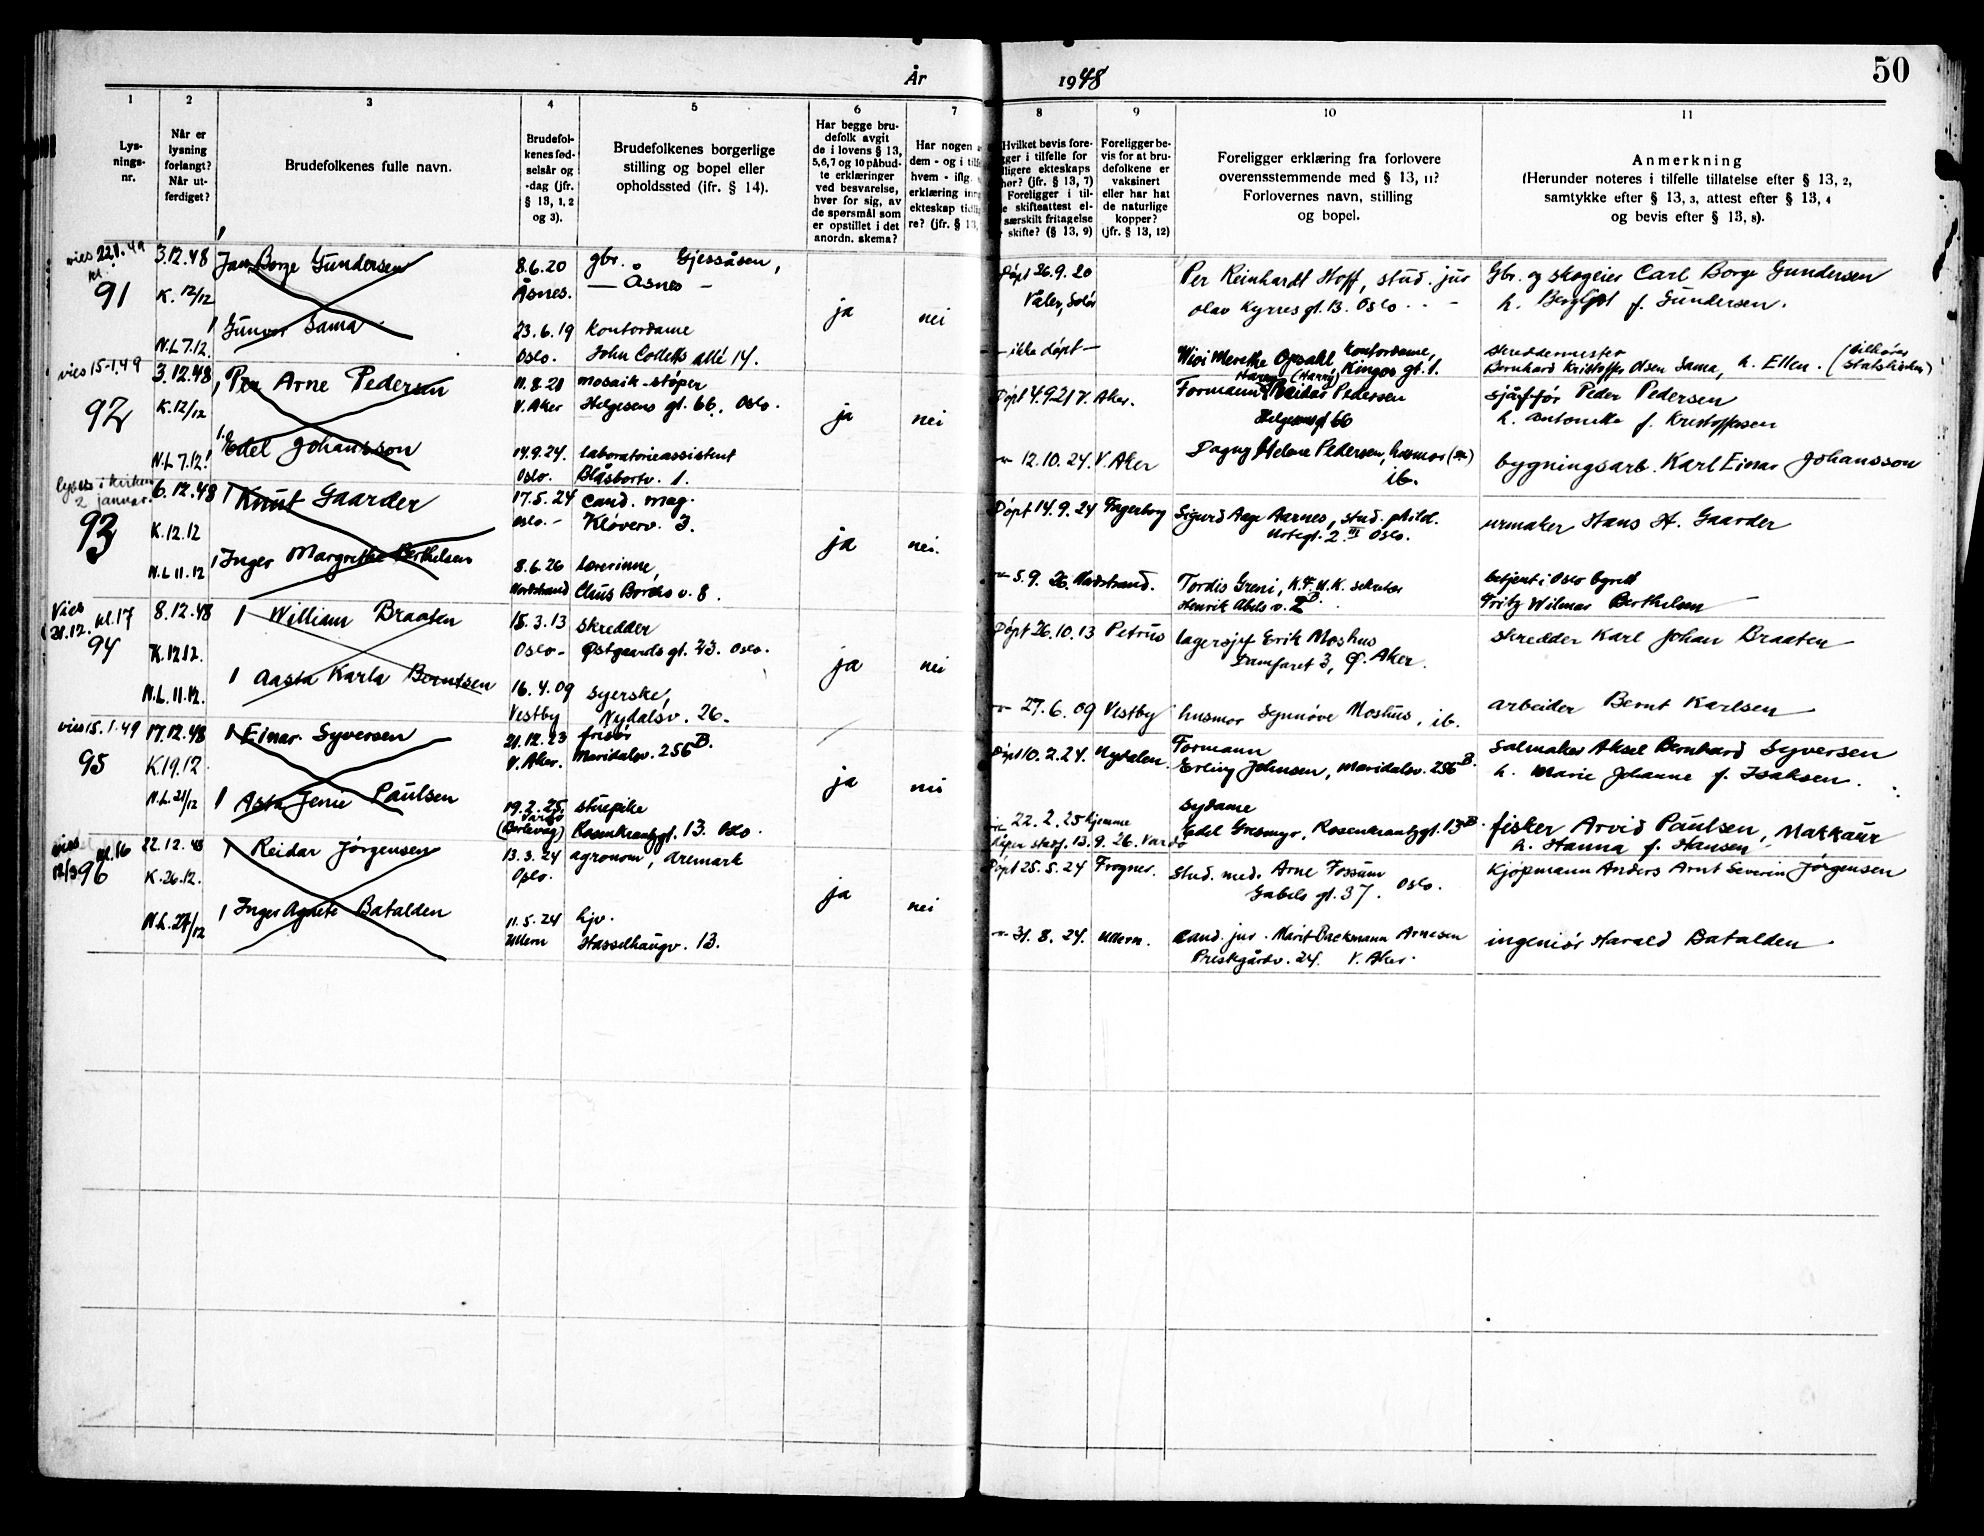 År 1948
50
1 2 3 4 5 6 7 8 9 10 11
Lys-
nings-
nr.
Når er
lysning
forlangt?
Når ut-
ferdiget?
Brudefolkenes fulle navn.
Brudefol-
kenes fød-
selsår og
-dag (jfr.
§ 13, 1, 2
og 3).
Brudefolkenes borgerlige
stilling og bopel eller
opholdssted (jfr. § 14).
Har begge bru-
defolk avgit
de i lovens § 13,
5,6,7 og 10 påbud-
te erklæringer
ved besvarelse,
hver for sig, av
de spørsmål som
er opstillet i det
anordn. skema?
Har nogen
dem - og i tilf
hvem - iflg.
erklæring inn
ekteskap tidli
re? (jfr. § 13,
Hvilket bevis fore-
ger i tilfelle for
ligere ekteskaps
hør? (jfr. § 13, 7)
Foreligger i til-
e skifteattest el-
særskilt fritagelse
skifte? (§ 13, 9)
Foreligger be-
vis for at bru-
defolkene er
vaksinert
eller har hat
de naturlige
kopper?
(jfr. § 13, 12)
Foreligger erklæring fra forlovere
overensstemmende med § 13, 11?
Forlovernes navn, stilling
og bopel.
Anmerkning
(Herunder noteres i tilfelle tillatelse efter § 13, 2,
samtykke efter § 13, 3, attest efter § 13, 4
og bevis efter § 13, 8).
vies 22.1.49
kl.
91
3.12.48
K. 12/12
N.L 7.12.
Jan Borge Gundersen
8.6.20
Åsnes.
gbr. Gjessåsen,
— Åsnes —
ja
nei
Døpt 26.9.20
Våler, Solør
Per Reinhardt Hoff, stud. jur
Olav Kyrres gt. 13. Oslo
Gbr. og skogeier Carl Borge Gundersen
h. Bergljot f. Gundersen.
Gunvor Sama
23.6.19
Oslo.
kontordame
John Colletts allé 14.
— ikke døpt —
Wivi Merethe Opsahl, kontordame,
Kingos gt. 1.
skreddermester
Bernhard Kristoffer Olsen Sama, h. Ellen. (tilhører
statskirken)
vies 15-1.49
92
3.12.48
K. 12/12
N.L 7.12!
Per Arne Pedersen
11.8.21
V. Aker
mosaik-støper
Helgesens gt. 66. Oslo.
ja
nei
Døpt 4.9.21 V. Aker.
Formann Reidar Pedersen
Helgesensgt 66
sjåffør Peder Pedersen
h. Antonette f. Kristoffersen
Edel Johansson
14.9.24.
Oslo.
laboratorieassistent
Blåsbortv. 1.
-"- 12.10.24. V. Aker
Dagny Helene Pedersen, husmor
ib.
bygningsarb. Karl Einar Johansson
lyses i kirken
2 januar.
93
6.12.48
K. 12.12
N.L 11.12
Knut Gaarder
17.5.24
Oslo.-
cand. mag.
Kløverv. 3.
ja
nei.
Døpt 14.9.24 Fagerborg
Sigurd Aage Aarnes, stud. phild.
Urtegt. 2 III Oslo.
urmaker Hans H. Gaarder
Inger Margrethe Berthelsen
8.6.26
Nordstrand
lærerinne,
Claus Borchs v. 8.
-"- 5.9.26. Nordstrand.
Tordis Greni, K.F.U.K. sekretær
Henrik Abels v. 2 D.
betjent i Oslo byrett
Fritz Wilmar Berthelsen
Vies
21.12. kl.17
94
8.12.48
K. 12.12.
N.L. 11.12.
William Braaten
15.3.13
Oslo-
skredder
Østgaards gt. 23. Oslo.
ja
nei
Døpt 26.10.13 Petrus
lagersjef Erik Moshus
Damfaret 3, Ø. Aker.
skredder Karl Johan Braaten
Aasta Karla Berntsen
16.4.09
Vestby
syerske,
Nydalsv. 26.
-"- 27.6.09 Vestby
husmor Synnøve Moshus, ib.
arbeider Bernt Karlsen
vies 15.1.49
95
17.12.48
K. 19.12
N.L. 21/12
Einar Syversen
21.12.23
V. Aker.
frisør
Maridalsv. 256 B.
ja
nei
Døpt 10.2.24. Nydalen.
Formann
Erling Johnsen, Maridalsv. 256 B.
salmaker Aksel Bernhard Syversen
h. Marie Johanne f. Isaksen.
Asta Jenie Paulsen
19.2.25.
Vardø
(Berlevåg)
stuepike
Rosenkrantzgt. 13. Oslo.
22.2.25 hjemme
13.9.26. Vardø
sydame
Edel Gresmyr, Rosenkrantzgt. 13 B.
fisker Arvid Paulsen, Makkaur
h. Hanna f. Hansen
vies kl.16
12/3
96
22.12.48
K. 26.12.
N.L. 27/12
Reidar Jørgensen
13.3.24
Oslo.
agronom, Aremark
ja
nei
Døpt 25.5.24 Frogner.
Stud. med. Arne Fossum
Gabels gt. 37. Oslo.
Kjøpmann Anders Arnt Severin Jørgensen
Inger Agnete Batalden
11.5.24
Ullern
hjv.
Hasselhaugv. 13.
-"- 31.8.24. Ullern.
Cand. jur. Marit Backmann Arnesen
Prestegårdv. 24. V. Aker.
ingeniør Harald Batalden